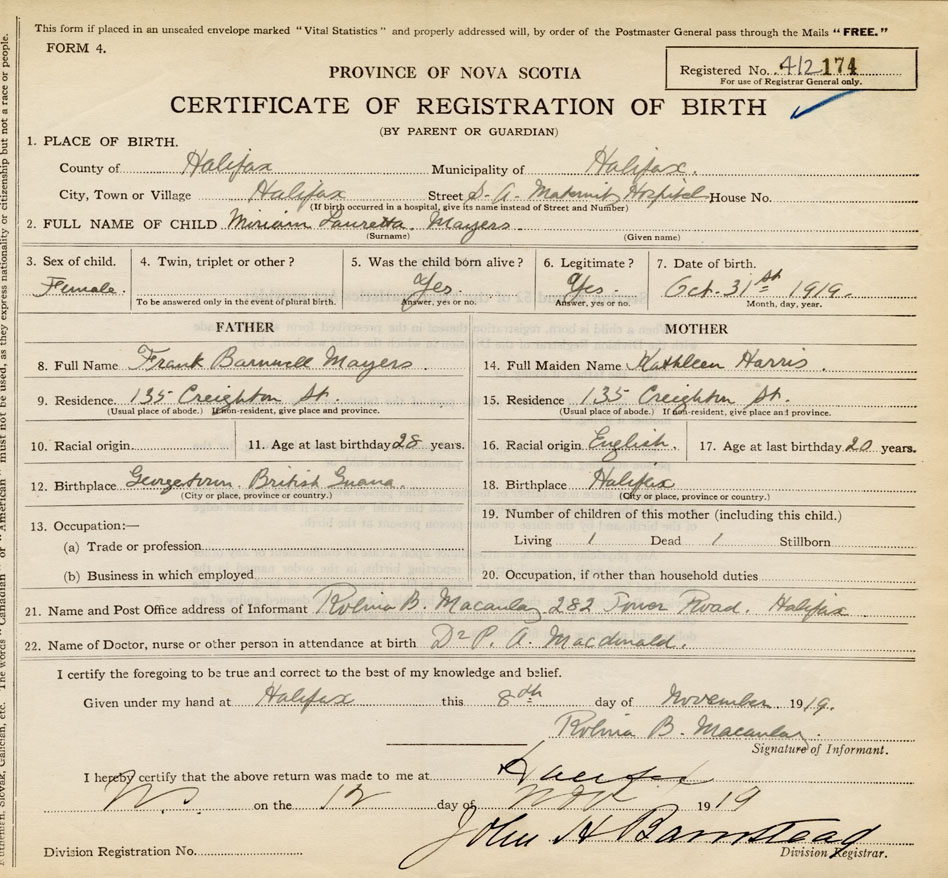 This form if placed in an unsealed envelope marked "Vital Statistics" and properly addressed will, by order of the Postmaster General pass through the Mails "FREE."
FORM 4.
Registered No. 412174
For use of Registrar General only.
PROVINCE OF NOVA SCOTIA
CERTIFICATE OF REGISTRATION OF BIRTH
(BY PARENT OR GUARDIAN)
1. PLACE OF BIRTH.
County of Halifax Municipality of Halifax.
City, Town or Village Halifax Street S. A. Maternity Hospital House No.
(If birth occurred in a hospital, give its name instead of Street and Number)
2. FULL NAME OF CHILD Miriam Lauretta. Mayers.
(Surname) (Given name)
3. Sex of child. 4. Twin, triplet or other? 5. Was the child born alive? 6. Legitimate? 7. Date of birth.
Female. Yes. Yes. Oct. 31st 1919.
To be answered only in the event of plural birth. Answer, yes or no. Answer, yes or no. Month, day, year.
FATHER MOTHER
8. Full Name Frank Barnwell Mayers. 14. Full Maiden Name Kathleen Harris.
9. Residence 135 Creighton St. 15. Residence 135 Creighton St.
(Usual place of abode.) If non-resident, give place and province. (Usual place of abode.) If non-resident, give place and province.
10. Racial origin 11. Age at last birthday 28 years. 16. Racial origin English. 17. Age at last birthday 20 years.
12. Birthplace Georgetown. British Guana. 18. Birthplace Halifax
(City or place, province or country.) (City or place, province or country.)
13. Occupation:— 19. Number of children of this mother (including this child.)
(a) Trade or profession Living 1 Dead 1 Stillborn
(b) Business in which employed 20. Occupation, if other than household duties
21. Name and Post Office address of Informant B. Macaulay 282 Tower Road. Halifax
22. Name of Doctor, nurse or other person in attendance at birth Dr P. A. Macdonald.
I certify the foregoing to be true and correct to the best of my knowledge and belief.
Given under my hand at Halifax this 8th day of November 1919.
B. Macaulay.
Signature of Informant.
I hereby certify that the above return was made to me at Halifax
N S on the 12 day of Nov 1919
John H Barnstead
Division Registration No. Division Registrar.
Ruthenian, Slovak, Galician, etc. The words "Canadian" or "American" must not be used, as they express nationality or citizenship but not a race or people.